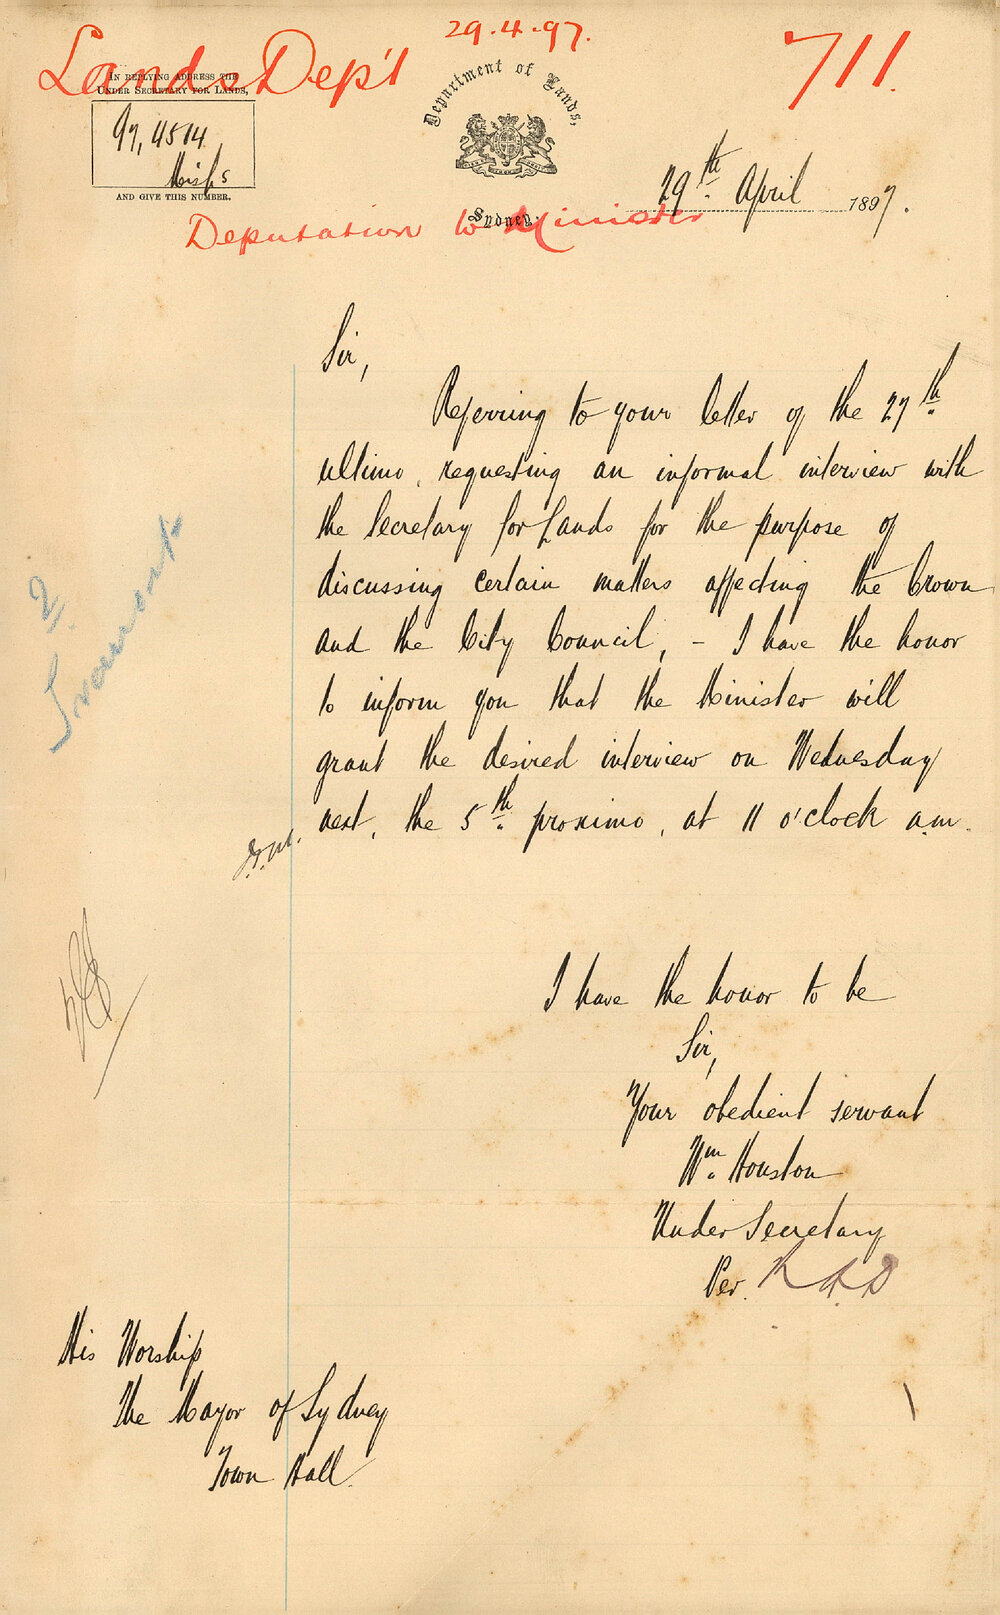 29.4.97.
Lands Dep't
711.
IN REPLYING ADDRESS THE
UNDER SECRETARY FOR LANDS,
97,4514
AND GIVE THIS NUMBER.
Department of Lands,
Sydney, 29th April 1897.
Deputation to Minister
Sir,
Referring to your letter of the 27th
ultimo, requesting an informal interview with
the Secretary for Lands for the purpose of
discussing certain matters affecting the Crown
and the City Council, - I have the honor
to inform you that the Minister will
grant the desired interview on Wednesday
next, the 5th proximo, at 11 o'clock a.m.
2
I have the honor to be
Sir,
Your obedient servant
Wm Houston
Under Secretary
Per.
His Worship
The Mayor of Sydney
Town Hall.